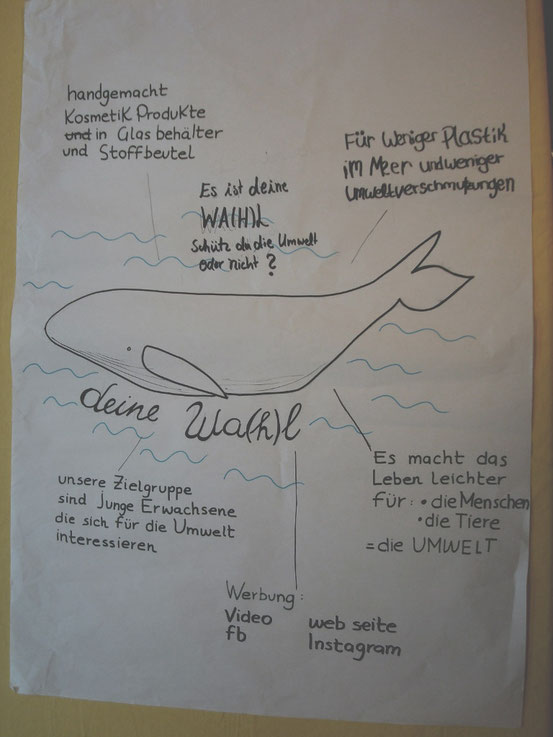 handgemacht
Kosmetik Produkte
und in Glas behälter
und Stoffbeutel
Für weniger Plastik
im Meer und weniger
Umweltverschmutzungen
Es ist deine
WA(H)L
Schütz du die Umwelt
oder nicht?
deine Wa(h)l
unsere Zielgruppe
sind junge Erwachsene
die sich für die Umwelt
interessieren
Es macht das
Leben leichter
für: • die Menschen
• die Tiere
= die UMWELT
Werbung:
Video web seite
fb Instagram